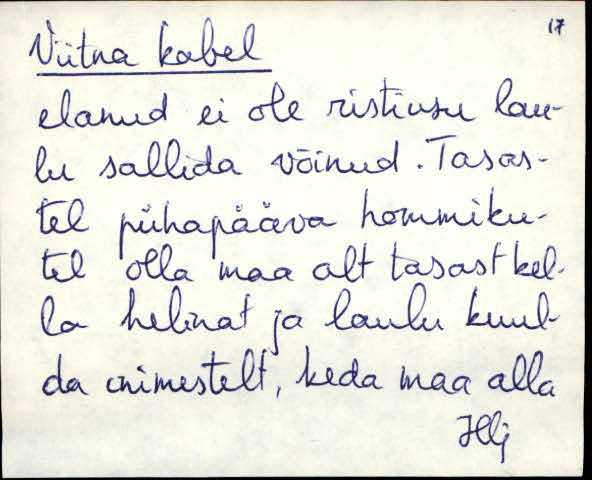 17
Viitna kabel
elanud ei ole ristiusu lau-
lu sallida võinud. Tasas-
tel pühapääva hommiku-
tel olla maa alt tasast kel-
la helinat ja laulu kuul-
da inimestelt, keda maa alla